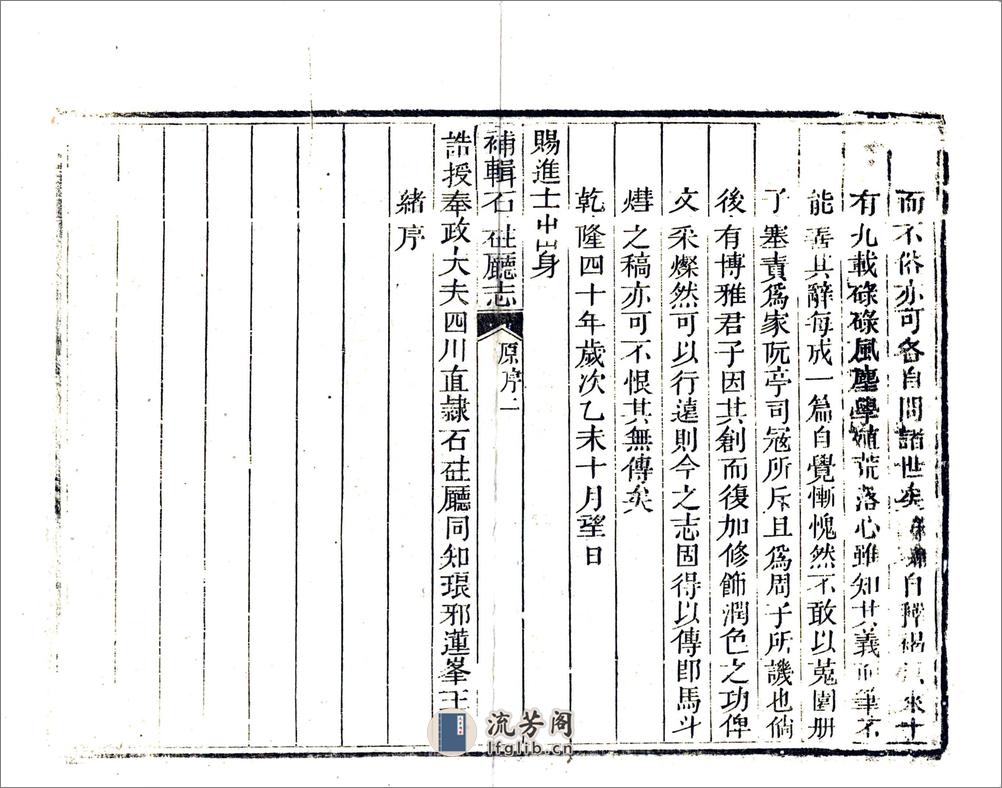 而不俗亦可各自問諸世矣自釋褐來十
有九載碌碌風塵學殖荒落心雖知其義而筆不
能善其辭每成一篇自覺慚愧然不敢以蒐園册
了塞責爲家阮亭司冦所斥且爲周子所譏也倘
後有博雅君子因其創而復加修飾潤色之功俾
文采燦然可以行遠則今之志固得以傳卽馬斗
㸁之稿亦可不恨其無傳矣
乾隆四十年歲次乙未十月望日
賜進士出身
補輯石砫廳志 原序二
誥授奉政大夫四川直隷石砫廳同知琅邪蓮峯王
緖序
流芳阁
lfglib.cn